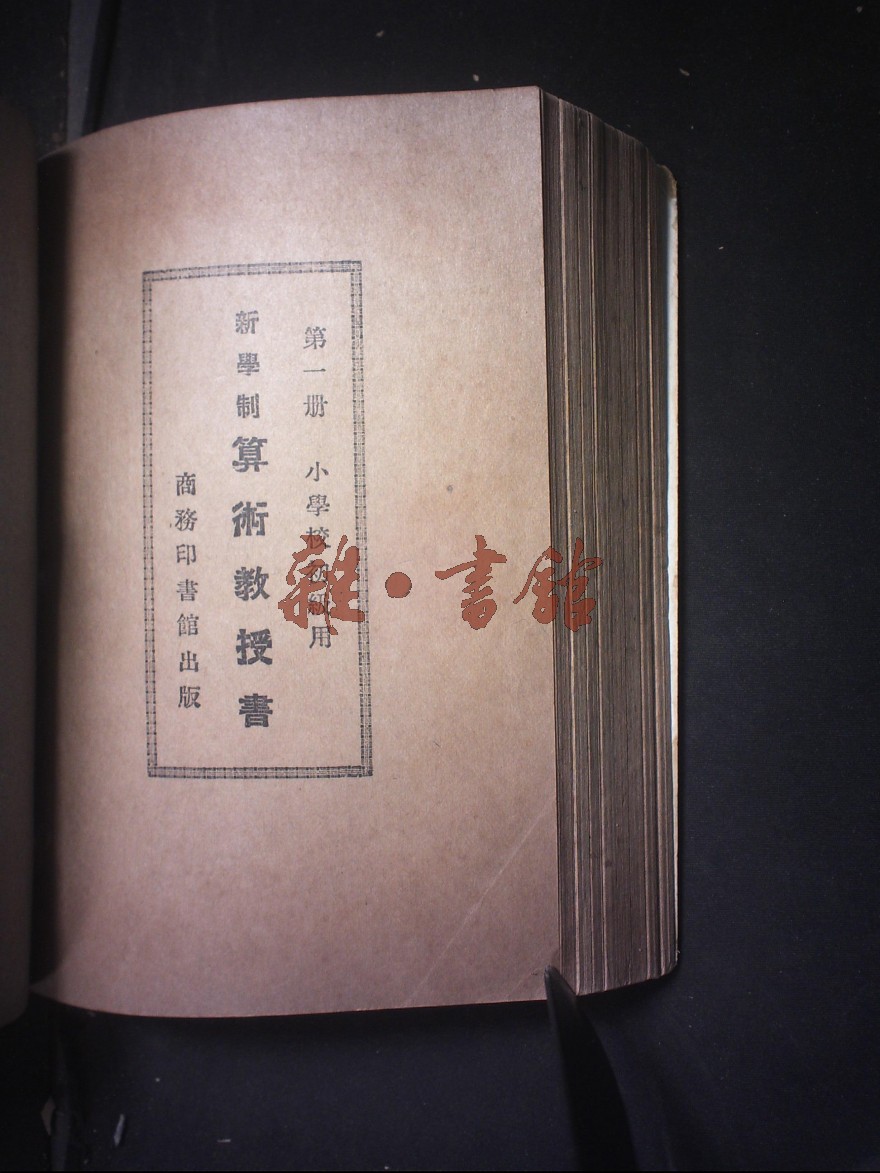 第一册　小學校初級用
新學制算術教授書
商務印書館出版
雜·書館